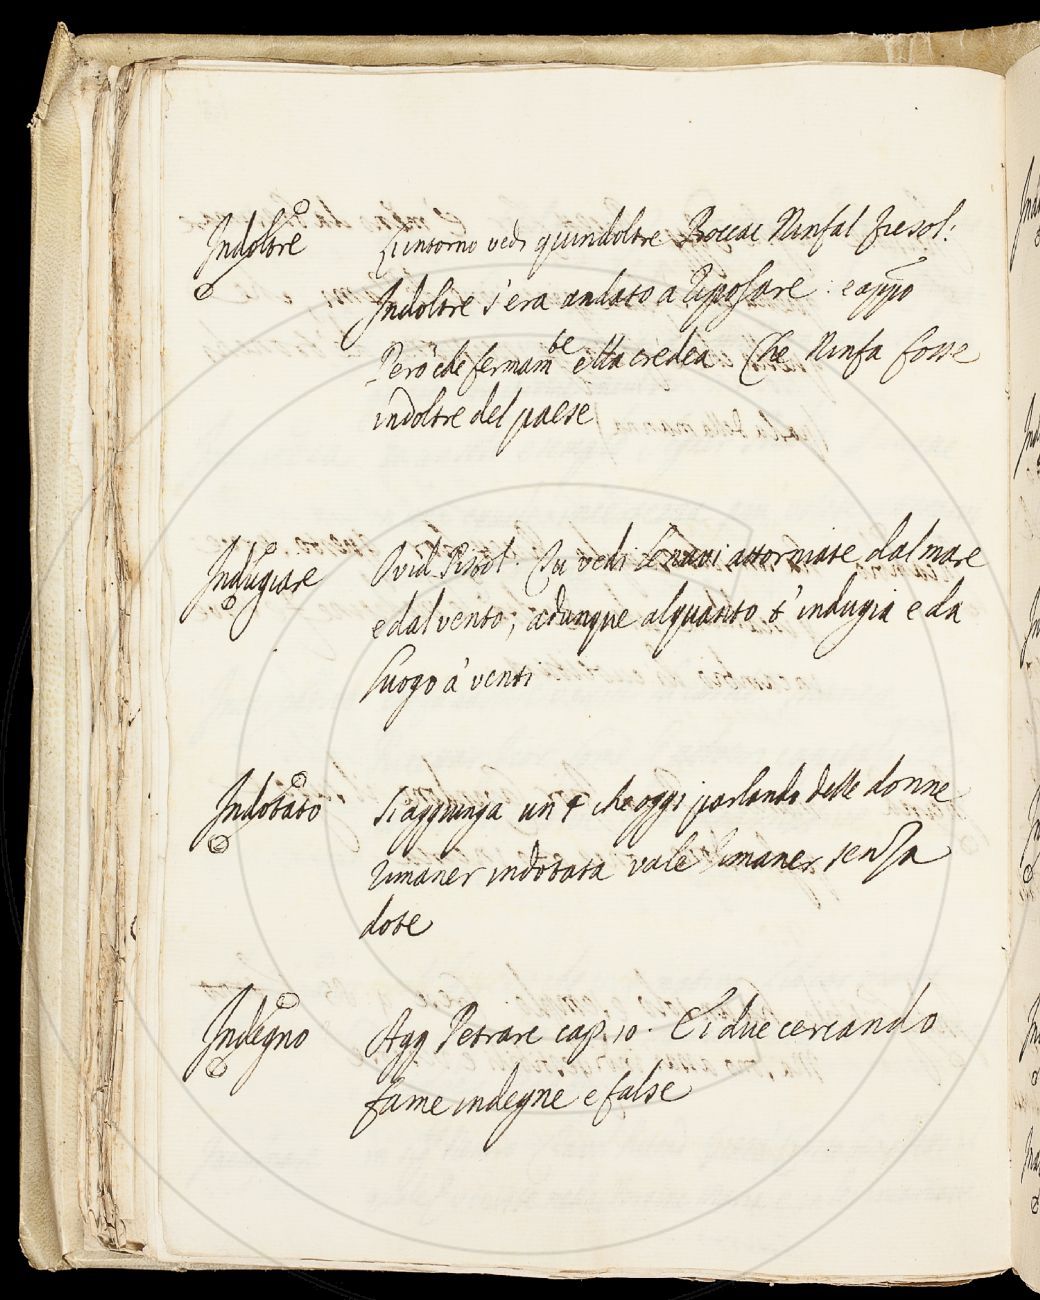 Indoltre Quintorno vedi quindoltre Boccac Ninfal Fiesol:
Indoltre s'era andato a riposare: e appo
Però che fermam.te ella credea Che Ninfa fosse
indoltre del paese
Indugiare Ovid Pistol. Tu vedi le navi attorniate dal mare
e dal vento; adunque alquanto t'indugia e da
luogo a' venti
Indotato Si aggiunga un § che oggi parlando delle donne
rimaner indotata vale rimaner senza
dote
Indegno Agg Petrarc cap. 10. E i due cercando
fame indegne e false